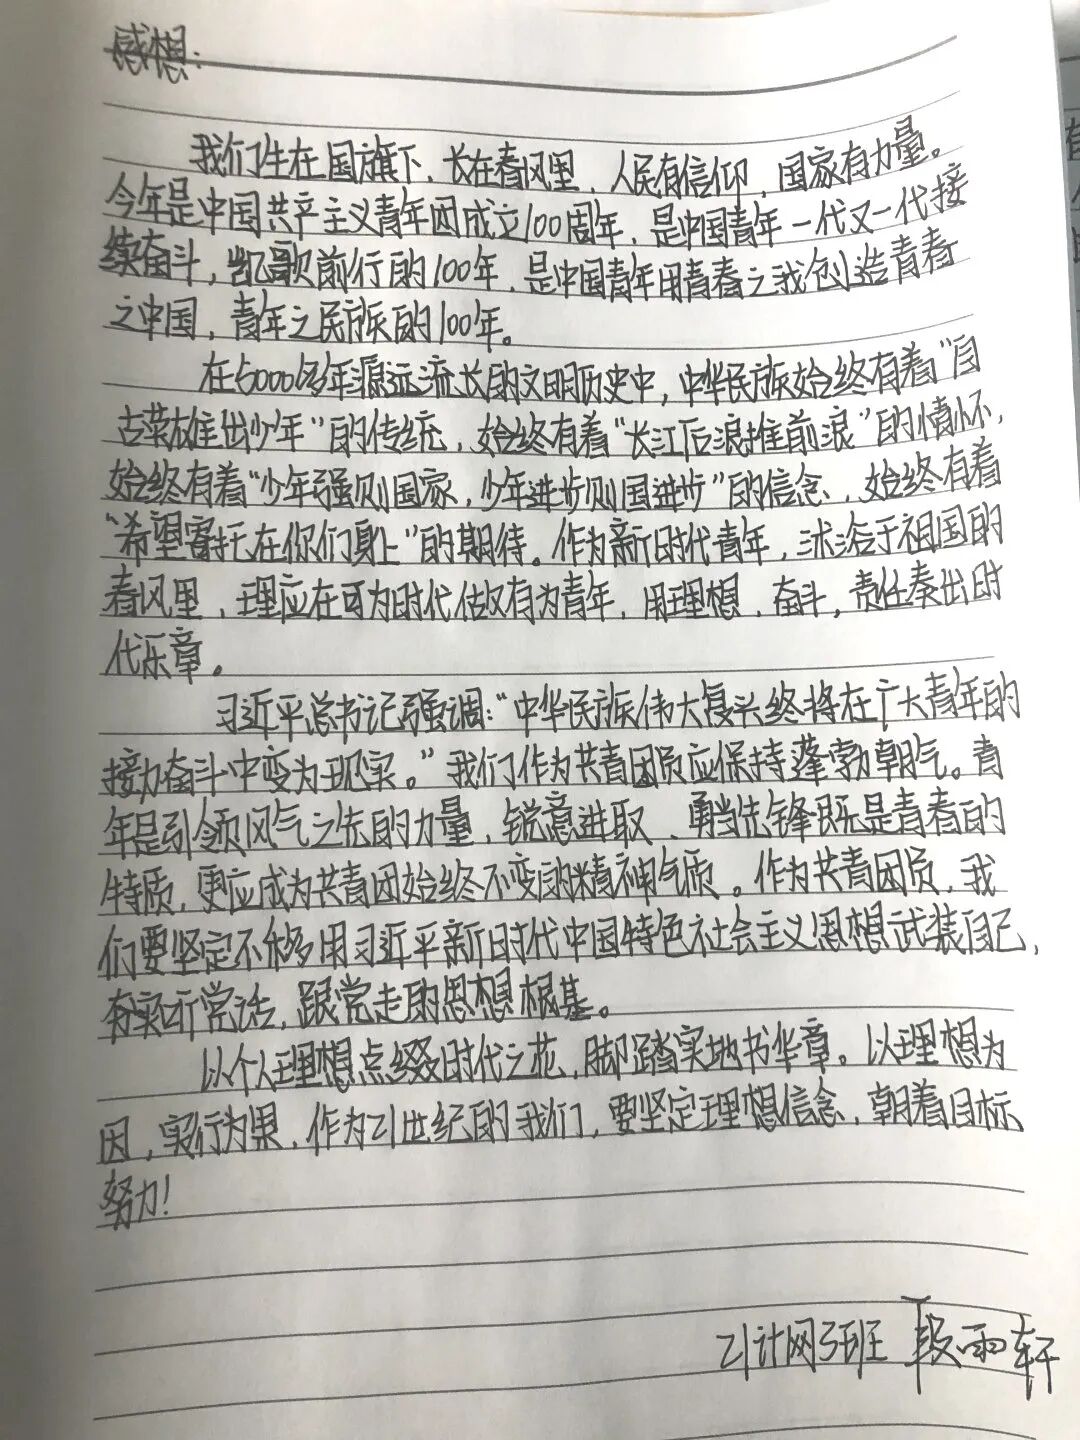 感想：
我们生在国旗下、长在春风里，人民有信仰，国家有力量。
今年是中国共产主义青年团成立100周年，是中国青年一代又一代接
续奋斗，凯歌前行的100年，是中国青年用青春之我创造青春
之中国，青年之民族的100年。
在5000多年源远流长的文明历史中，中华民族始终有着“自
古英雄出少年”的传统，始终有着“长江后浪推前浪”的情怀，
始终有着“少年强则国家，少年进步则国进步”的信念，始终有着
“希望寄托在你们身上”的期待。作为新时代青年，沐浴于祖国的
春风里，理应在可为时代做有为青年，用理想，奋斗，责任奏出时
代乐章。
习近平总书记强调：“中华民族伟大复兴终将在广大青年的
接力奋斗中变为现实。”我们作为共青团员应保持蓬勃朝气。青
年是引领风气之先的力量，锐意进取、勇当先锋既是青春的
特质，更应成为共青团始终不变的精神气质。作为共青团员，我
们要坚定不移用习近平新时代中国特色社会主义思想武装自己，
夯实听党话，跟党走的思想根基。
以个人理想点缀时代之花，脚踏实地书华章。以理想为
因，实行为果，作为21世纪的我们，要坚定理想信念，朝着目标
努力！
21计网3班 段雨轩